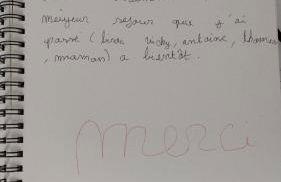 meilleur sejour que j'ai
passé ( lina, ricky, antoine, thomas
, maman) a bientôt.
merci